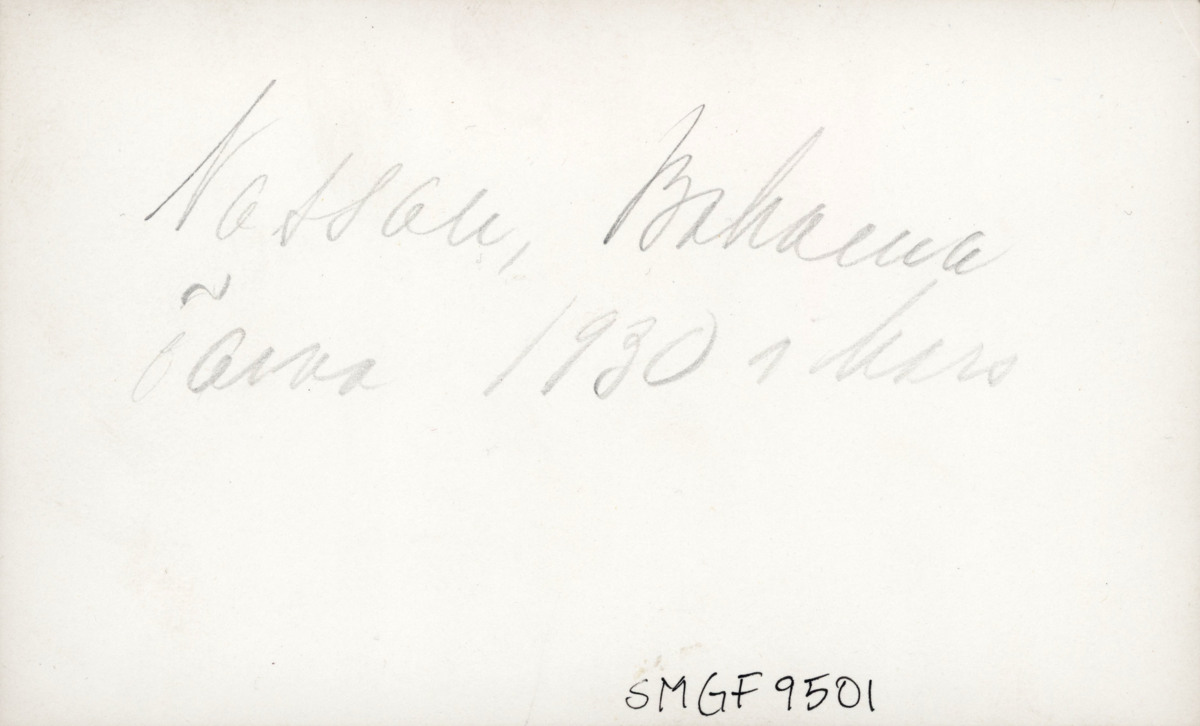 Nassau, Bahama
1930 i mars
SMGF 9501